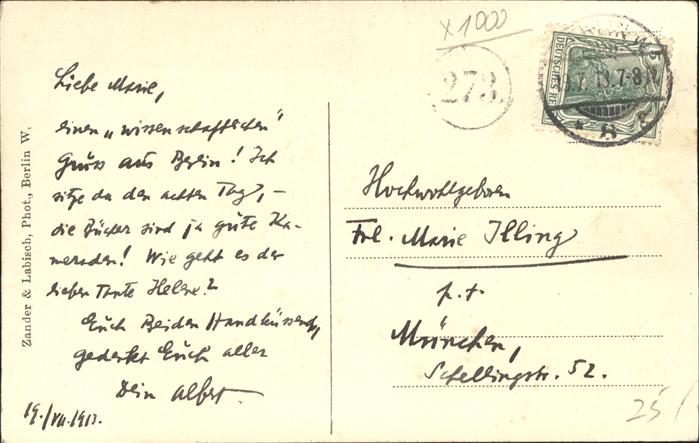 x 1000
273.
DEUTSCHES REICH
7-8N
* 8
Liebe Marie,
einen „wissenschaftlichen"
Gruss aus Berlin! Ich
sitze da den achten Tag, –
die Bücher sind ja gute Ka-
meraden! Wie geht es der
lieben Tante Helene?
Euch Beiden Handküssend,
gedenkt Euch aller
Dein Albert.
19./VII.1913.
Zander & Labisch, Phot., Berlin W.
Hochwohlgeboren
Frl. Marie Illing
p. t.
München,
Schellingstr. 52.
25/